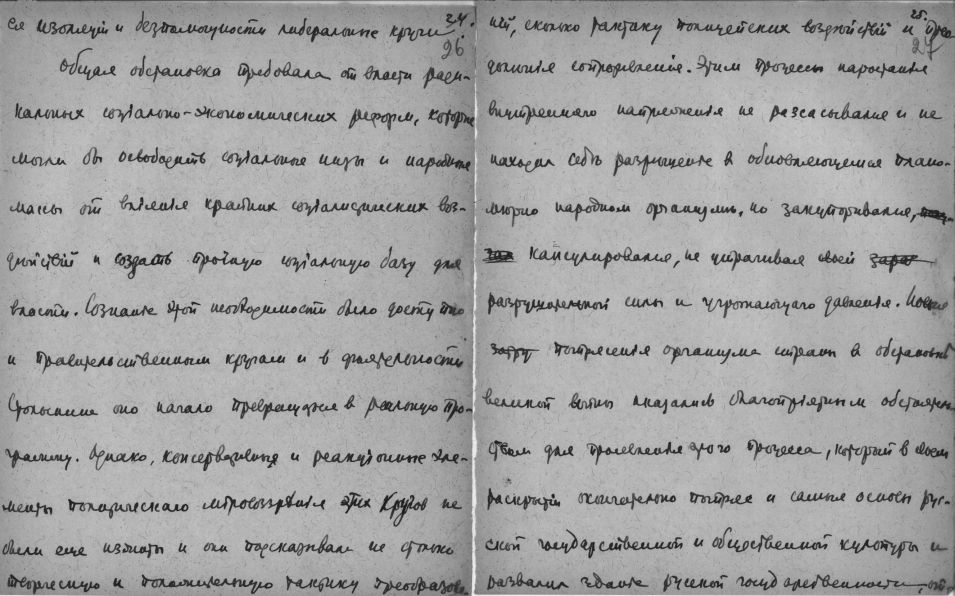 24.
26
ся изоляціи и безпомощности либеральные круги.
Общая обстановка требовала от власти ради-
кальных соціально-экономических реформ, которые
могли бы освободить соціальные низы и народные
массы от вліянія крайних соціалистических воз-
действій и создать прочную соціальную базу для
власти. Сознание этой необходимости было доступно
и правительственным кругам и в деятельности
Столыпина оно начало превращаться в реальную про-
грамму. Однако, консервативные и реакціонные эле-
менты политическаго міровоззрѣнія этих кругов не
были еще изжиты и они подсказывали не столько
творческую и положительную тактику преобразова-
25.
27
ній, сколько тактику полицейских воздѣйствій и
сопротивленія. Этим процессы наростанія
внутренняго напряженія не разсасывался и не
находил себѣ разрѣшенія в обновляющемся плано-
мѣрно народном организмѣ, но закупоривался,
капсулировался, не утрачивая своей
разрушительной силы и угрожающаго давленія.
потрясенія организма страны в обстановкѣ
великой войны оказались благопріятным обстоятель-
ством для проявленія этого процесса, который в своем
раскрытіи окончательно потряс и самые основы рус-
ской государственной и общественной культуры и
развалил зданіе русской государственности,